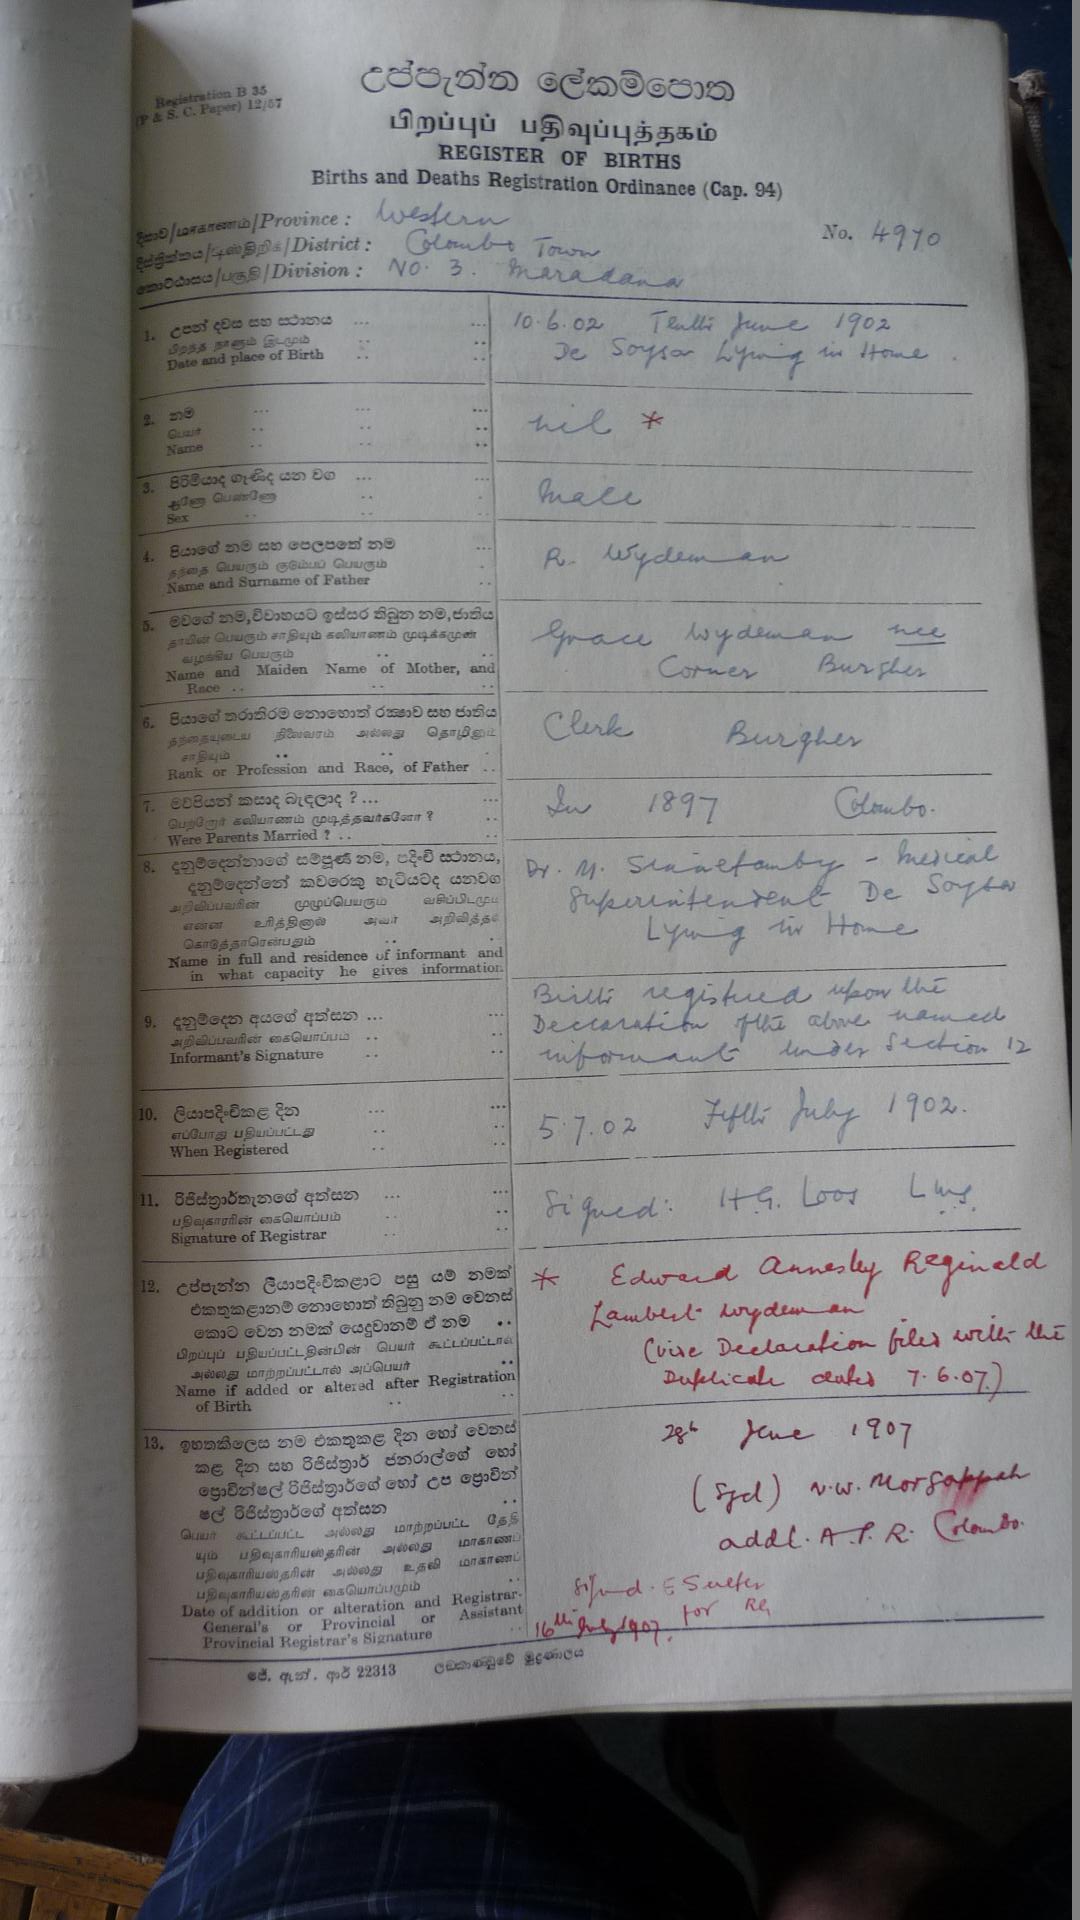 Registration B 35
(P & S. C. Paper) 12/57
උප්පැන්න ලේකම්පොත
பிறப்புப் பதிவுப்புத்தகம்
REGISTER OF BIRTHS
Births and Deaths Registration Ordinance (Cap. 94)
දිසාව/மாகாணம்/Province : Western
No. 4970
දිස්ත්‍රික්කය/டிஸ்திறிக்/District : Colombo Town
කොට්ඨාසය/பகுதி/Division : No. 3. Maradana
1. උපන් දවස සහ ස්ථානය ... ... 10.6.02 Tenth June 1902
பிறந்த நாளும் இடமும் .. ..
Date and place of Birth .. .. De Soysa Lying in Home .
2. නම ... ... ...
பெயர் .. .. .. nil *
Name .. .. ..
3. පිරිමියාද ගැණිද යන වග ... ...
ஆணோ பெண்ணோ .. . Male
Sex .. .. .
4. පියාගේ නම සහ පෙලපතේ නම ... R. Wydeman
தந்தை பெயரும் குடும்பப் பெயரும் .
Name and Surname of Father ..
5. මවගේ නම, විවාහයට ඉස්සර තිබුන නම, ජාතිය
தாயின் பெயரும் சாதியும் கலியாணம் முடிக்கமுன் Grace Wydeman nee
வழங்கிய பெயரும் .. ..
Name and Maiden Name of Mother, and Corner Burgher
Race .. .. ..
6. පියාගේ තරාතිරම නොහොත් රක්‍ෂාව සහ ජාතිය
தந்தையுடைய நிலைவரம் அல்லது தொழிலும் Clerk Burgher
சாதியும் .. .
Rank or Profession and Race, of Father ..
7. මවපියන් කසාද බැඳලාද ? ... ... In 1897 Colombo.
பெற்றோர் கலியாணம் முடித்தவர்களோ ? ..
Were Parents Married ? .. ..
8. දැනුම්දෙන්නාගේ සම්පූර්‍ණ නම, පදිංචි ස්ථානය, Dr. M. Sinnetamby - Medical
දැනුම්දෙන්නේ කවරෙකු හැටියටද යනවග Superintendent De Soysa
அறிவிப்பவரின் முழுப்பெயரும் வசிப்பிடமும்
என்ன உரித்தினால் அவர் அறிவித்தல் Lying in Home
கொடுத்தாரென்பதும் .. .
Name in full and residence of informant and
in what capacity he gives information
Birth registered upon the
9. දැනුම්දෙන අයගේ අත්සන ... ... Declaration of the above named
அறிவிப்பவரின் கையொப்பம் .. ..
Informant's Signature .. .. informant under Section 12
10. ලියාපදිංචිකළ දින ... ... 5.7.02 Fifth July 1902.
எப்போது பதியப்பட்டது .. ..
When Registered .. ..
11. රිජිස්ත්‍රාර්තැනගේ අත්සන ... ... Signed: H.G. Loos L.M.S.
பதிவுகாரரின் கையொப்பம் .. ..
Signature of Registrar .. ..
12. උප්පැන්න ලියාපදිංචිකළාට පසු යම් නමක් * Edward Annesley Reginald
එකතුකළානම් නොහොත් තිබුනු නම වෙනස් Lambert Wydeman
කොට වෙන නමක් යෙදුවානම් ඒ නම ..
பிறப்புப் பதியப்பட்டதின்பின் பெயர் கூட்டப்பட்டால் (vide Declaration filed with the
அல்லது மாற்றப்பட்டால் அப்பெயர் ..
Name if added or altered after Registration Duplicate dated 7.6.07.)
of Birth .. ..
13. ඉහතකීලෙස නම එකතුකළ දින හෝ වෙනස් 28th June 1907
කළ දින සහ රිජිස්ත්‍රාර් ජනරාල්ගේ හෝ
ප්‍රොවින්ෂල් රිජිස්ත්‍රාර්ගේ හෝ උප ප්‍රොවින් (Sgd) N.W. Morgappah
ෂල් රිජිස්ත්‍රාර්ගේ අත්සන ..
பெயர் கூட்டப்பட்ட அல்லது மாற்றப்பட்ட தேதி addl. A.P.R. Colombo.
யும் பதிவுகாரியஸ்தரின் அல்லது மாகாணப்
பதிவுகாரியஸ்தரின் அல்லது உதவி மாகாணப்
பதிவுகாரியஸ்தரின் கையொப்பமும் .. Signed. E
Date of addition or alteration and Registrar- for RG
General's or Provincial or Assistant
Provincial Registrar's Signature .. 16th July 1907.
ජේ. ඇන්. ආර් 22313 ලඞ්කාණ්ඩුවේ මුද්‍රණාලය